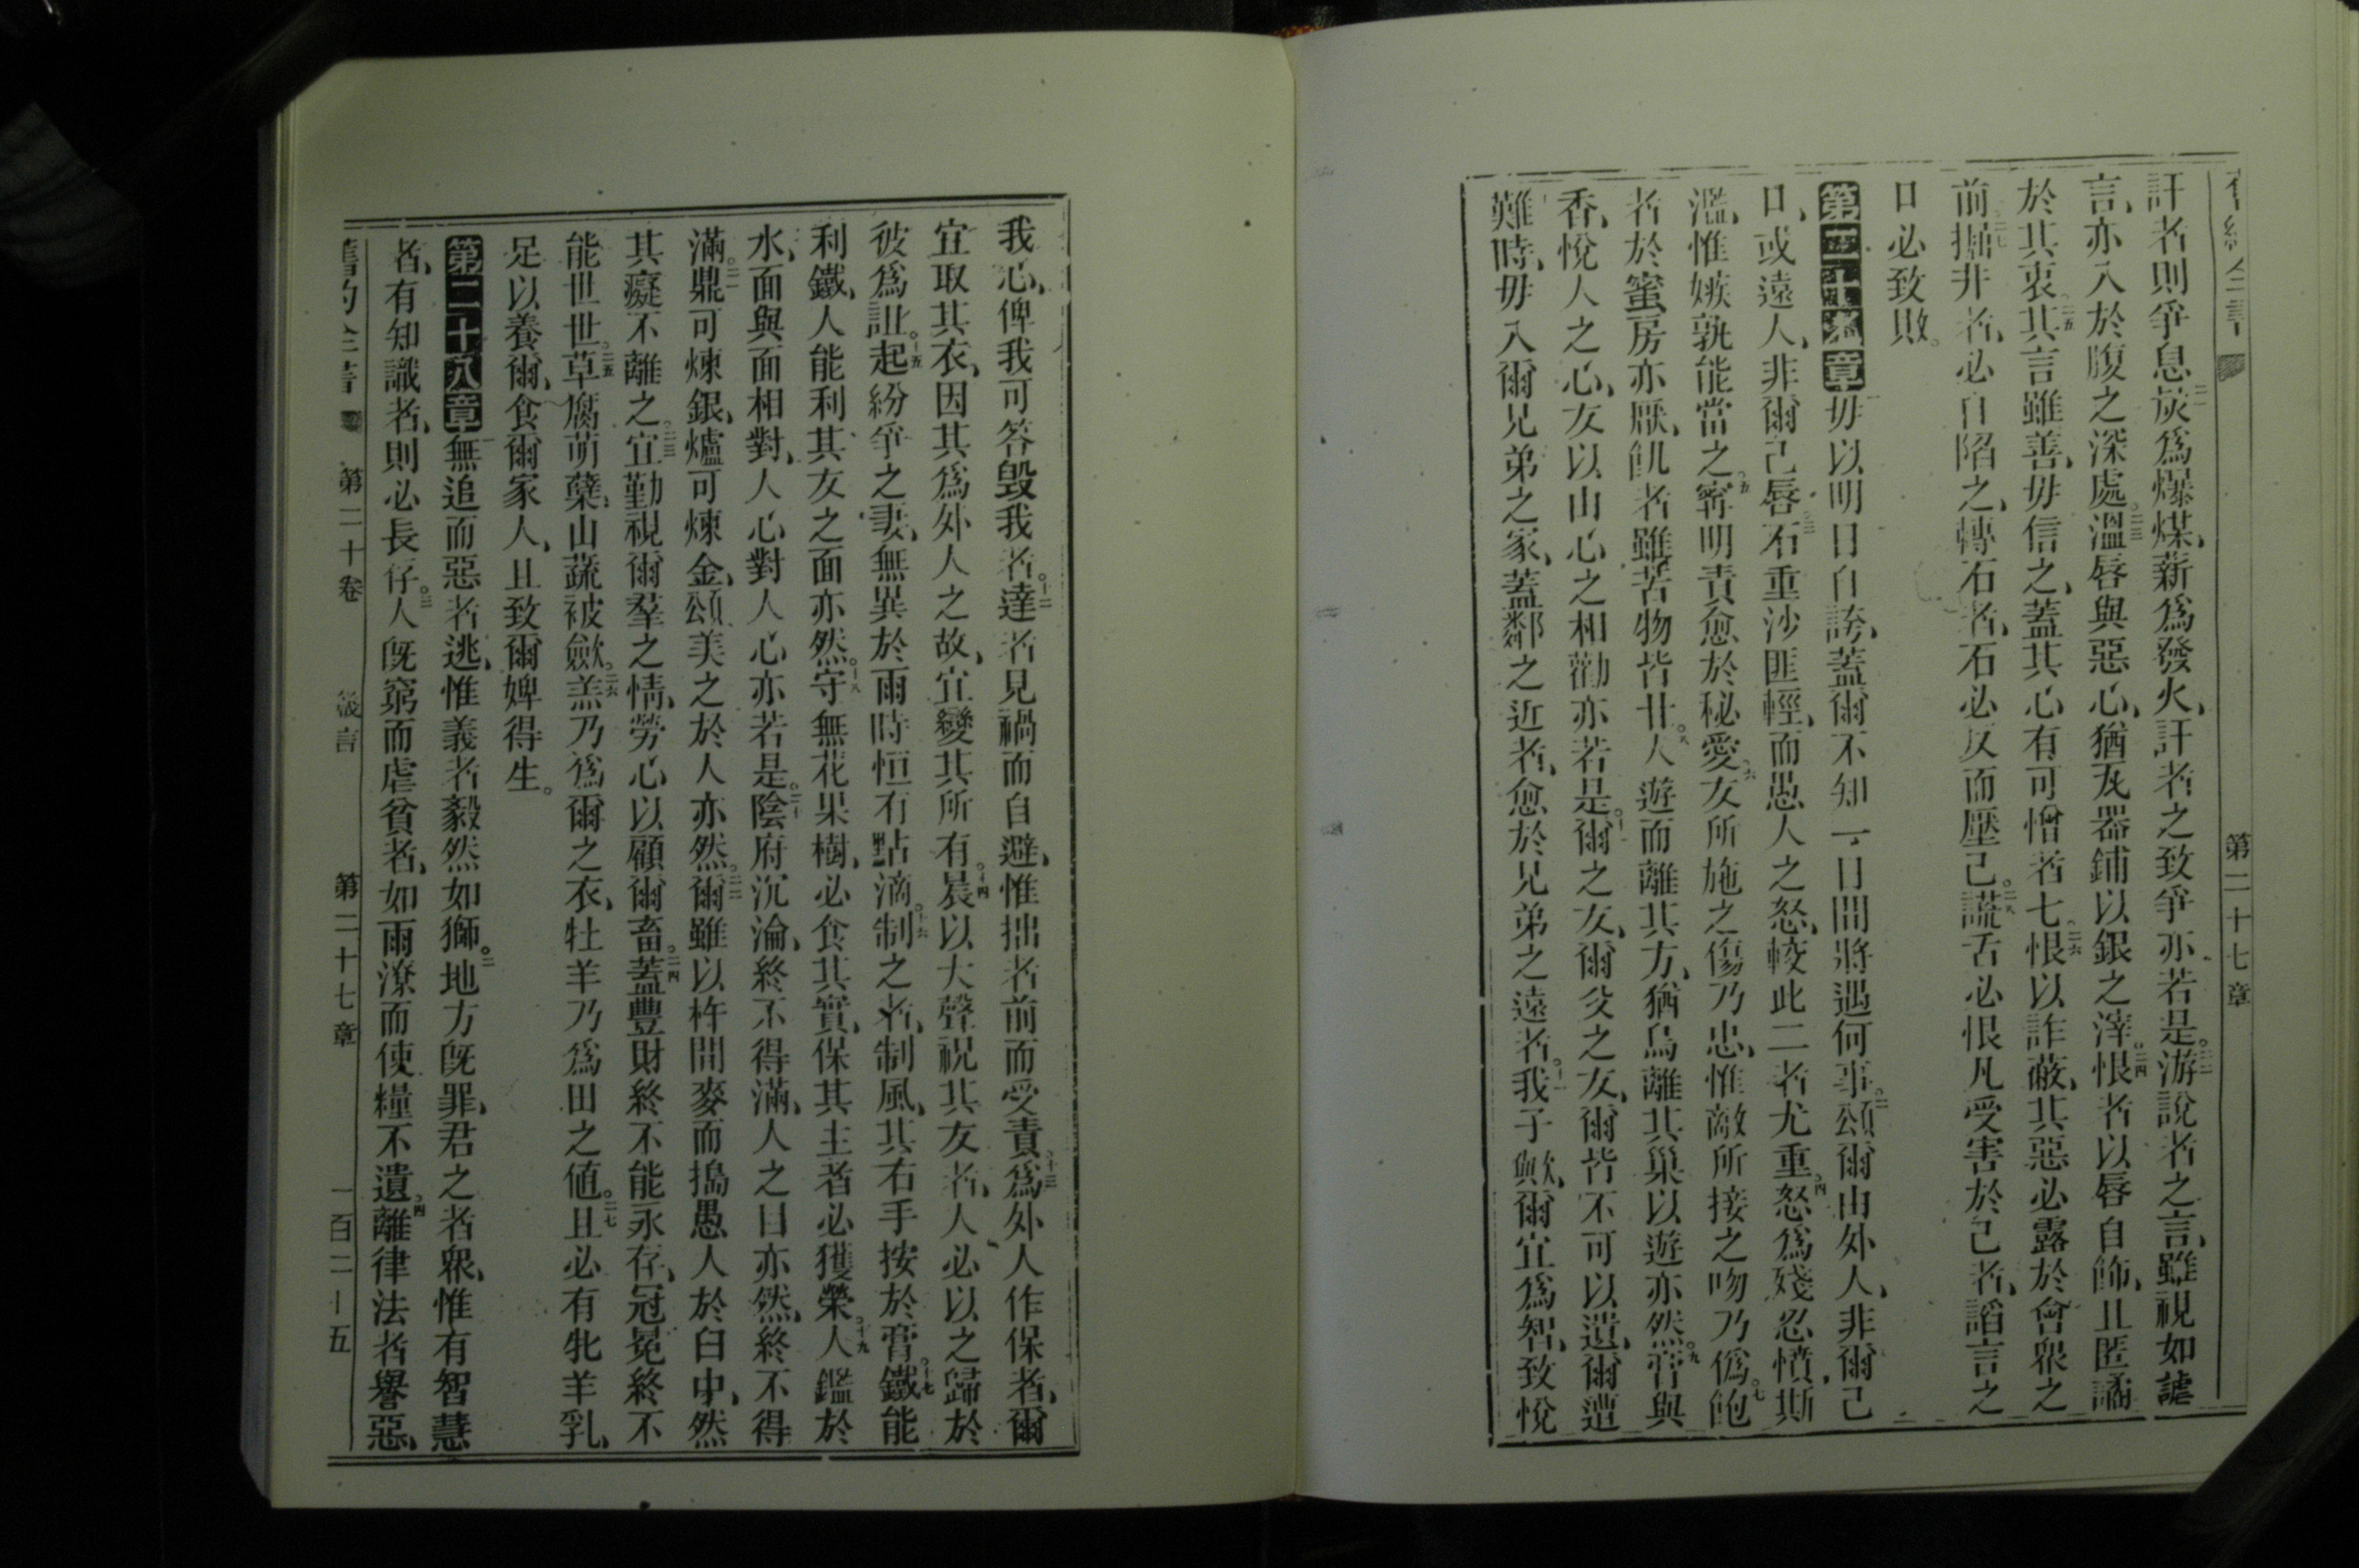 第二十七章
訐者則爭息二一炭爲爆煤、薪爲發火、訐者之致爭亦若是。二二游說者之言、雖視如謔
言、亦入於腹之深處。二三溫唇與惡心、猶瓦器鋪以銀之滓。二四恨者以唇自飾、且匿譎
於其衷。二五其言雖善、毋信之、蓋其心有可憎者七。二六恨以詐蔽、其惡必露於會衆之
前。二七掘非者、必自陷之、轉石者、石必反而壓己。二八謊舌必恨凡受害於己者、諂言之
口必致敗。
第二十七章一毋以明日自誇、蓋爾不知一日間將遇何事。二頌爾由外人、非爾己
口、或遠人、非爾己唇。三石重沙匪輕、而愚人之怒、較此二者尤重。四怒爲殘忍憤、斯
濫、惟嫉孰能當之。五寧明責愈於秘愛。六友所施之傷乃忠、惟敵所接之吻乃僞。七飽
者於蜜房亦厭、飢者雖苦物皆甘。八人遊而離其方、猶鳥離其巢以遊亦然。九膏與
香、悅人之心、友以由心之相勸亦若是。十爾之友、爾父之友、爾皆不可以遺、爾遭
難時、毋入爾兄弟之家、蓋鄰之近者、愈於兄弟之遠者。十一我子歟、爾宜爲智、致悅
我心、俾我可答毀我者。十二達者見禍而自避、惟拙者前而受責。十三爲外人作保者、爾
宜取其衣、因其爲外人之故、宜變其所有。十四晨以大聲祝其友者、人必以之歸於
彼爲詛。十五起紛爭之妻、無異於雨時恒有點滴。十六制之者、制風、其右手按於膏。十七鐵能
利鐵、人能利其友之面亦然。十八守無花果樹、必食其實、保其主者必獲榮。十九人鑑於
水、面與面相對、人心對人心亦若是。二十陰府沉淪、終不得滿、人之目亦然、終不得
滿。二一鼎可煉銀、爐可煉金、頌美之於人亦然。二二爾雖以杵間麥而搗愚人於臼中、然
其癡不離之。二三宜勤視爾羣之情、勞心以顧爾畜。二四蓋豐財終不能永存、冠冕終不
能世世。二五草腐萌櫱、山蔬被斂。二六羔乃爲爾之衣、牡羊乃爲田之値。二七且必有牝羊乳、
足以養爾、食爾家人、且致爾婢得生。
第二十八章一無追而惡者逃、惟義者毅然如獅。二地方旣罪、君之者衆、惟有智慧
者、有知識者、則必長存。三人旣窮而虐貧者、如雨潦而使糧不遺。四離律法者譽惡、
舊約全書 第二十卷 箴言 第二十七章 一百二十五